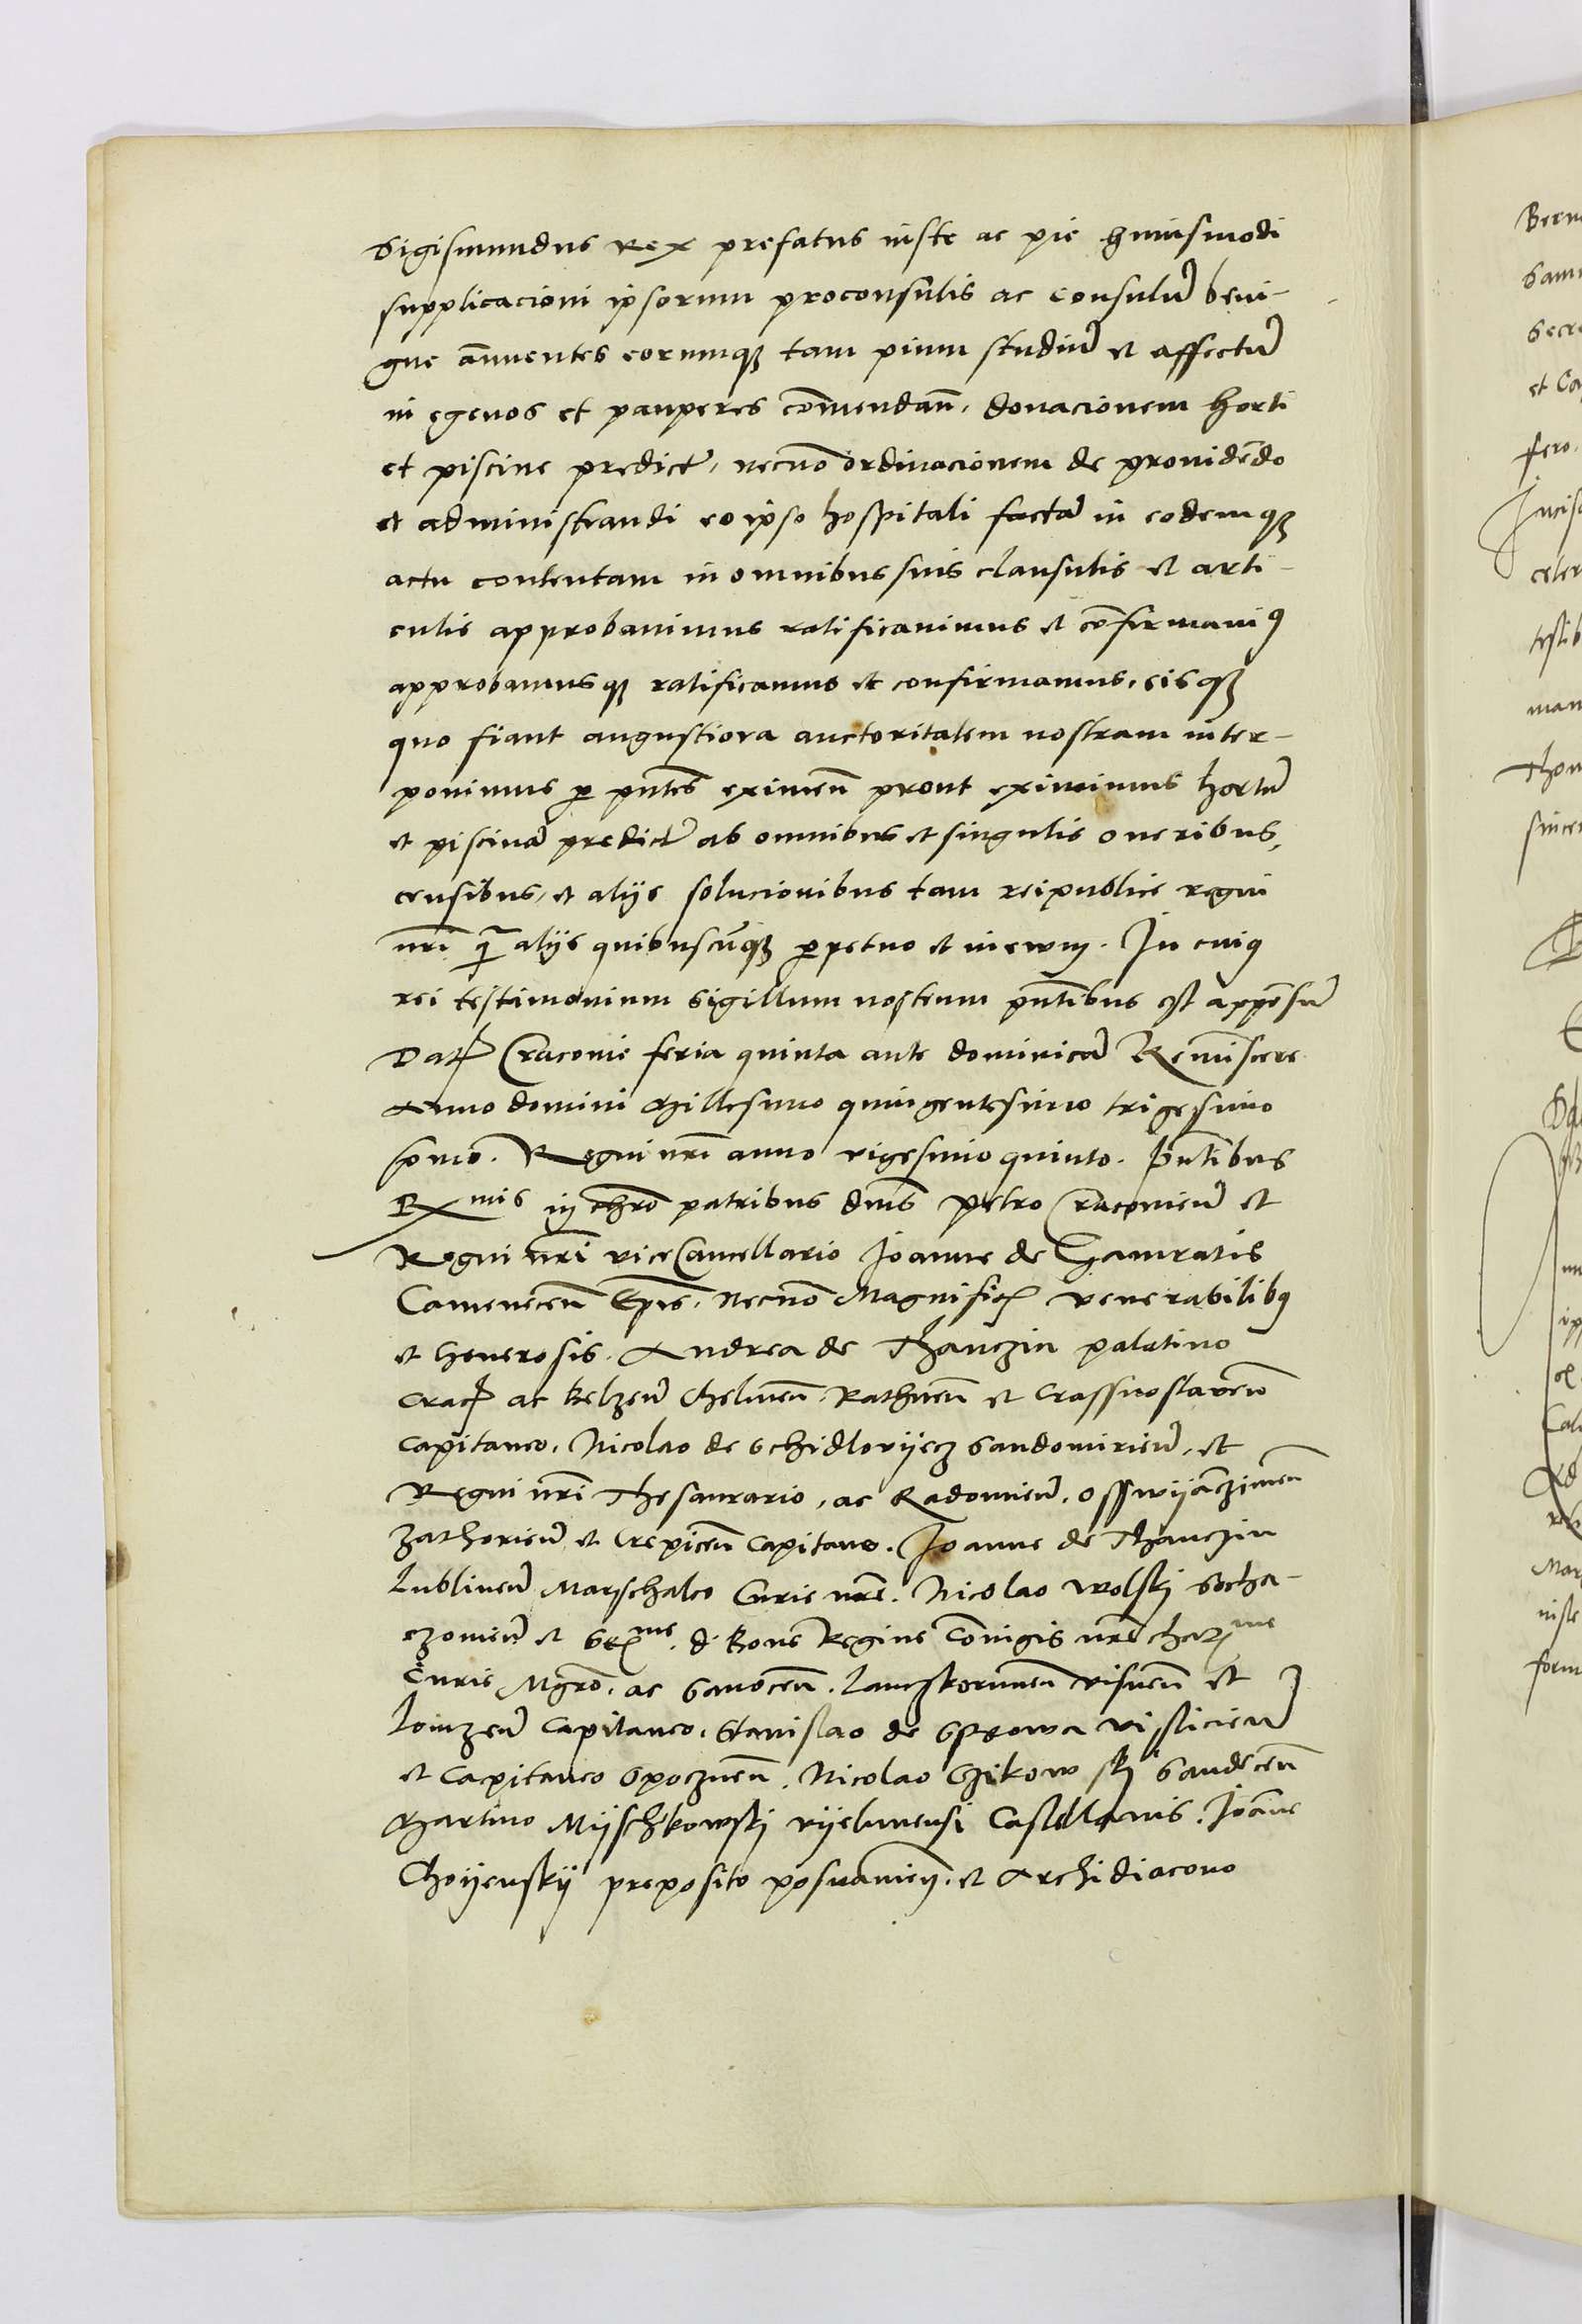 Sigismundus Rex prefatus iuste ac pie huiusmodi
supplicacioni ipsorum proconsulis ac consulũ beni-
gne añuentes eorumqȝ tam pium studiũ et affectũ
in egenos et pauperes cõmendañ. donacionem horti
et piscine predict, necnõ ordinacionem de prouidẽdo
et administrandi eo ipso hospitali factã in eodemqȝ
actu contentam in omnibus suis clausulis et arti-
culis approbauimus ratificauimus et cõfirmauimꝰ
approbamusqȝ ratificamus et confirmamus, eisqȝ
quo fiant angustiora auctoritatem nostram inter-
ponimus ꝑ pñtes eximeñ prout eximimus hortũ
et piscinã predict ab omnibus et singulis oneribus,
censibus, et alijs solucionibus tam reipublice regni
nr̃i q̃ alijs quibuscũqȝ ꝑpetuo et in ewm. In cuiꝰ
rei testimonium sigillum nostrum pñtibus est appẽsũ
Dat Cracouie feria quinta ante dominicã Remiscere
Anno domini Millesimo quingentesimo trigesimo
pmo. Regni nr̃i anno vigesimo quinto. pñtibus
Rmis in chro patribus dnis Petro Cracouieñ et
Regni nr̃i viceCancellario Joanne de Gamratis
Cameneceñ Epis. Necnõ Magnific venerabilibꝰ
et Generosis. Andrea de Thanczin palatino
Crac ac Belzeñ Chelmeñ. Rathneñ et Crassnostaweñ
Capitaneo. Nicolao de Schidlovijecz Sandomirieñ, et
Regni nr̃i Thesaurario, ac Radomieñ. Osswijãczimeñ
Zathorieñ et Crepiceñ Capitaneo. Joanne de Thanczin
Lublineñ Marschalco Curie nr̃e. Nicolao Wolskj Socha-
czouieñ et Serme. d. Bone Regine Cõiugis nr̃e charme
Curie Mgrõ. ac Sanoceñ. Lanczkoruneñ visneñ et
Lomzeñ Capitaneo. Stanislao de Sprowa vislicieñ
et Capitaneo Spoczneñ. Nicolao Czikowskj Sandeceñ
Martino Mijschkowskj vijelunensi Castellanis. Joãne
Choijenskij preposito posnanieñ. et Archidiacono